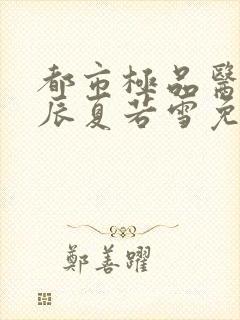 都市極品醫
辰夏若雪免
鄭善躍